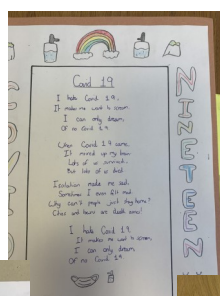 Covid 19
I hate Covid 19,
It makes me want to scream
I can only dream,
Of no Covid 19
When Covid 19 came,
It mixed up my brain
Lots of us survived,
But lots of us died
Isolation made me sad,
Sometimes I even felt mad
Why can't people just stay home?
Cities and towns are death zones!
I hate Covid 19
It makes me want to scream,
I can only dream
Of no Covid 19
NINETEEN